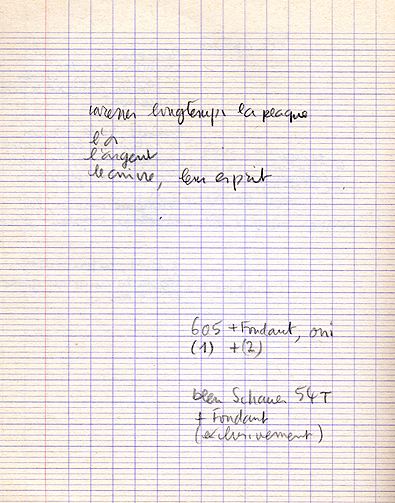 caresser longtemps la plaque
l'or
l'argent
le cuivre, leur esprit
605 + Fondant, oui
(1) + (2)
bleu Schauer 54T
+ Fondant
(exclusivement)